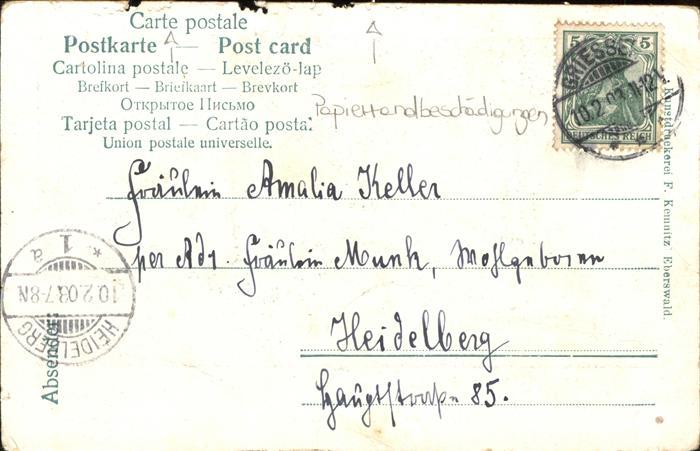 Carte postale
Postkarte — Post card
Cartolina postale — Levelező-lap
Brefkort — Briefkaart — Brevkort
Открытое Письмо
Tarjeta postal — Cartão postal
Union postale universelle.
Papierrandbeschädigungen
5 5
10.2.03.11-12
DEUTSCHES REICH
Kunstdruckerei F. Kemnitz, Eberswald.
Fräulein Amalia Keller
per Adr. Fräulein Munk, Wohlgeboren
Heidelberg
Hauptstraße 85.
* 1 a
10.2.03.7-8N
HEIDELBERG
Absender: